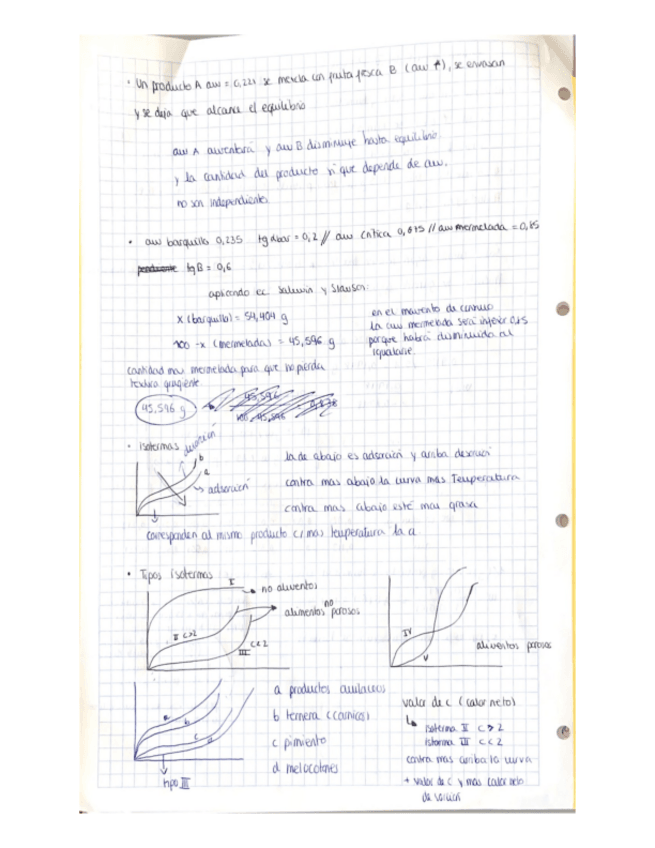 · Un producto A aw = 0,221 se mezcla con fruta fresca B (aw ↑), se envasan
y se deja que alcance el equilibrio
aw A aumentará y aw B disminuye hasta equilibrio
y la cantidad del producto si que depende de aw,
no son independientes
· aw barquillo 0,235 tg αbar = 0,2 // aw crítica 0,675 // aw mermelada = 0,85
tg B = 0,6
aplicando ec. Salwin y Slawson:
x (barquillo) = 54,404 g
100 - x (mermelada) = 45,596 g
en el momento de consumo
la aw mermelada será inferior 0,85
porque habrá disminuido al
igualarse.
cantidad max mermelada para que no pierda
textura crujiente
45,596 g
· Isotermas
desorción
b
a
→ adsorción
la de abajo es adsorción y arriba desorción
contra mas abajo la curva mas Temperatura
contra mas abajo esté mas grasa
corresponden al mismo producto c/ mas temperatura la a
· Tipos isotermas
I
no alimentos
alimentos no porosos
II c>2
III c<2
IV
V
alimentos porosos
a
b
c
d
tipo III
a productos amilaceos
b ternera (cárnicos)
c pimiento
d melocotones
valor de c (calor neto)
isoterma II c > 2
isoterma III c < 2
contra mas arriba la curva
+ valor de c y mas calor neto
de sorción